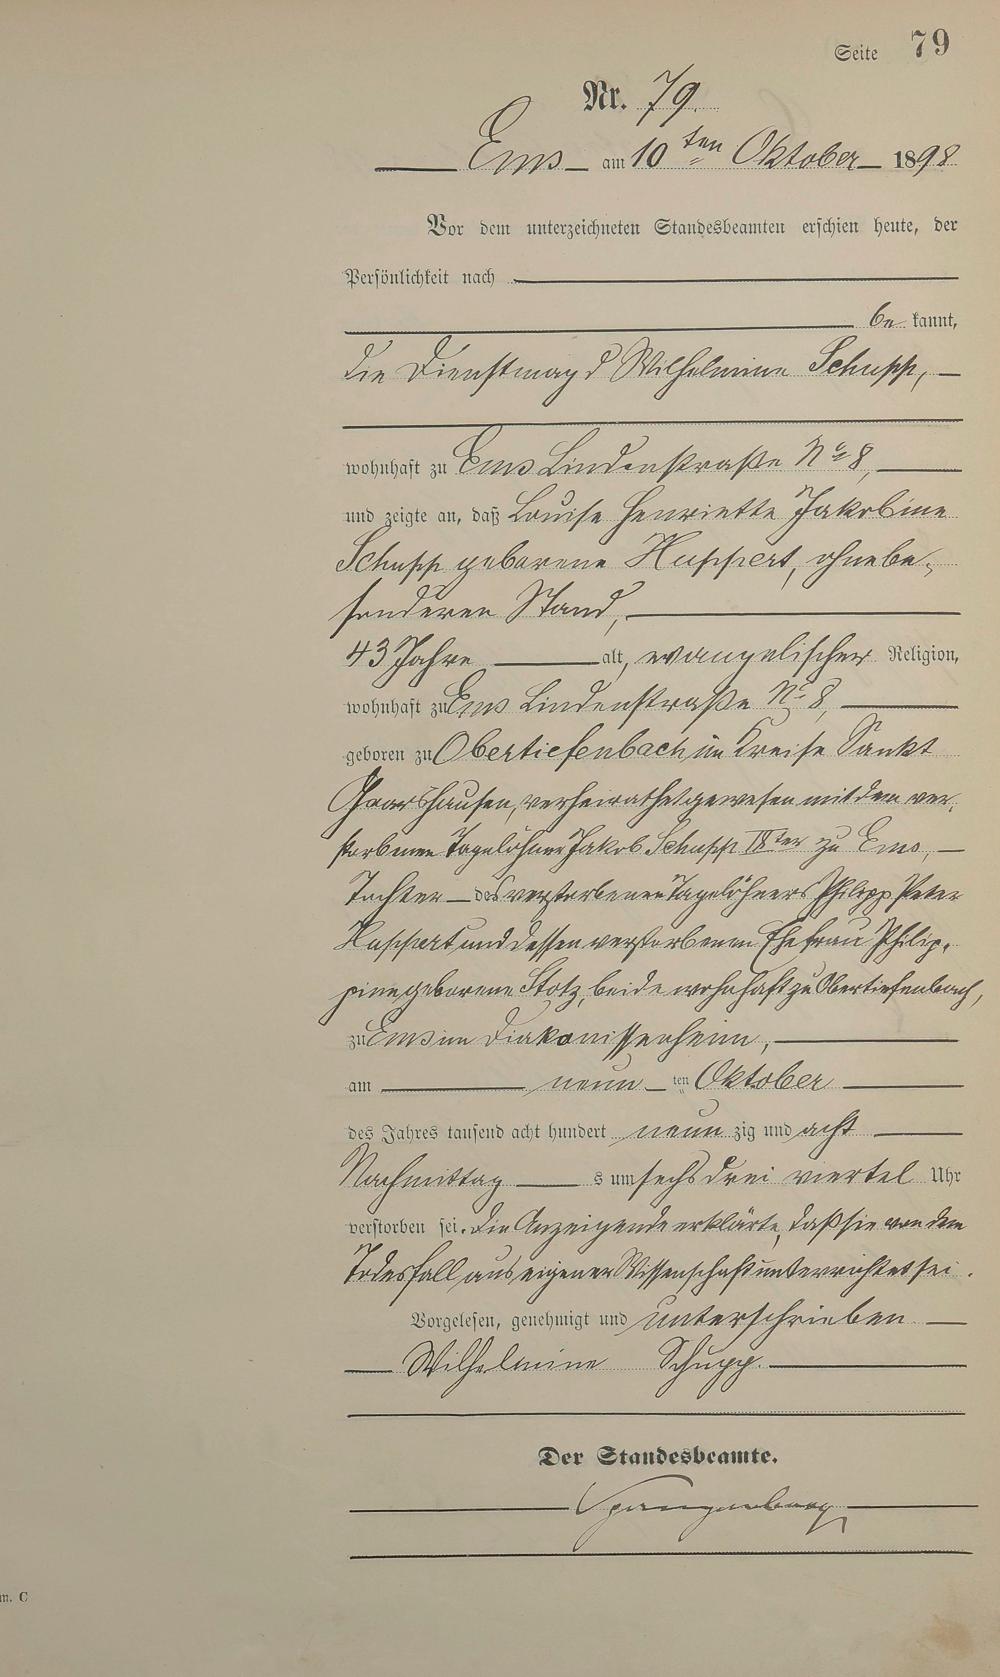 Seite 79
Nr. 79.
Ems am 10ten Oktober 1898
Vor dem unterzeichneten Standesbeamten erschien heute, der
Persönlichkeit nach
be kannt,
die Dienstmagd Wilhelmine Schupp,
wohnhaft zu Ems Lindenstraße No 8,
und zeigte an, daß Louise Henriette Jakobine
Schupp geborene Huppert, ohne be-
sonderen Stand,
43 Jahre alt, evangelischer Religion,
wohnhaft zu Ems Lindenstraße No 8,
geboren zu Obertiefenbach im Kreise Sankt
Goarshausen, verheirathet gewesen mit dem ver-
storbenen Tagelöhner Jakob Schupp IXter zu Ems,
Tochter des verstorbenen Tagelöhners Philipp Peter
Huppert und dessen verstorbenen Ehefrau Philip-
pine geborene Stotz, beide wohnhaft zu Obertiefenbach,
zu Ems im Diakonissenheim,
am neun ten Oktober
des Jahres tausend acht hundert neun zig und acht
Nachmittag s um sechs drei viertel Uhr
verstorben sei. Die Anzeigende erklärte, daß sie von dem
Todesfall aus eigener Wissenschaft unterrichtet sei.
Vorgelesen, genehmigt und unterschrieben
Wilhelmine Schupp.
Der Standesbeamte.
Spangenberg
m. C